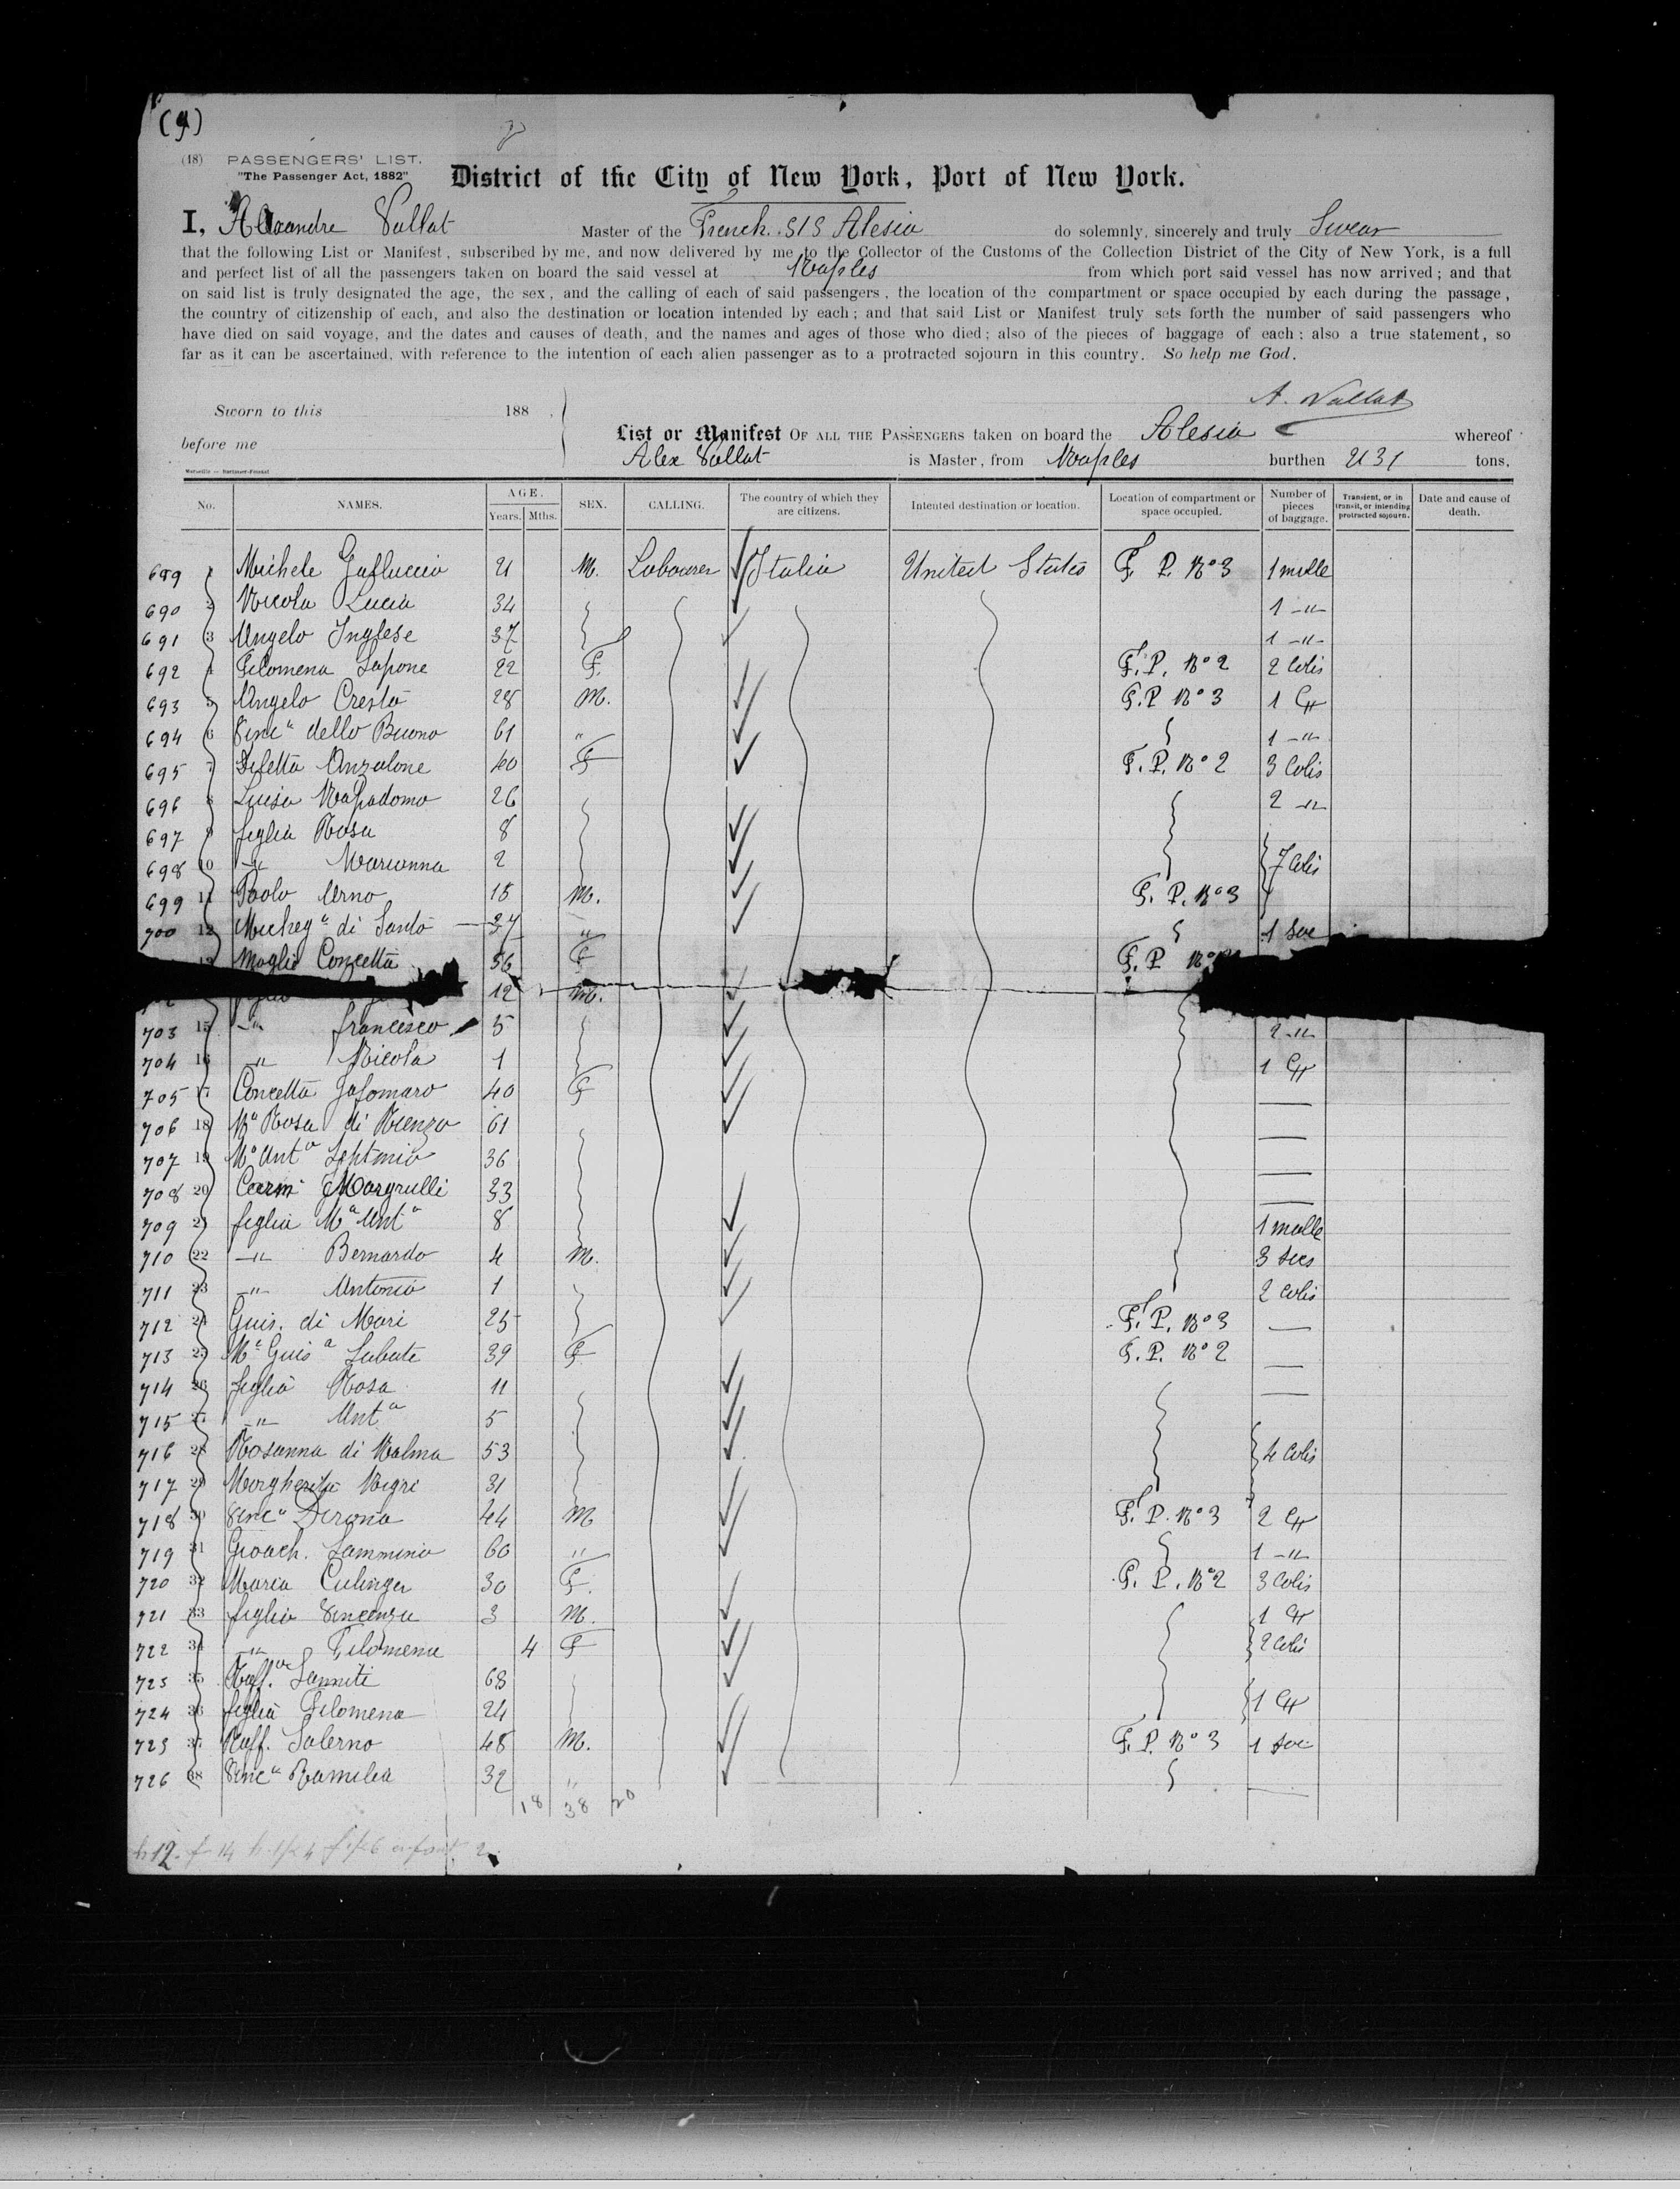 (9)
(18) PASSENGERS' LIST.
"The Passenger Act, 1882"
District of the City of New York, Port of New York.
I, Alexandre Vallat Master of the French S/S Alesia do solemnly, sincerely and truly Swear
that the following List or Manifest, subscribed by me, and now delivered by me to the Collector of the Customs of the Collection District of the City of New York, is a full
and perfect list of all the passengers taken on board the said vessel at Naples from which port said vessel has now arrived; and that
on said list is truly designated the age, the sex, and the calling of each of said passengers, the location of the compartment or space occupied by each during the passage,
the country of citizenship of each, and also the destination or location intended by each; and that said List or Manifest truly sets forth the number of said passengers who
have died on said voyage, and the dates and causes of death, and the names and ages of those who died; also of the pieces of baggage of each; also a true statement, so
far as it can be ascertained, with reference to the intention of each alien passenger as to a protracted sojourn in this country. So help me God.
A. Vallat
Sworn to this 188 .
before me
List or Manifest OF ALL THE PASSENGERS taken on board the Alesia whereof
Alex Vallat is Master, from Naples burthen tons.
No. NAMES. AGE. Years. Mths. SEX. CALLING. The country of which they are citizens. Intented destination or location. Location of compartment or space occupied. Number of pieces of baggage. Transient, or in transit, or intending protracted sojourn. Date and cause of death.
689 1 Michele Galluccio 21 M. Labourer Italia United States F. P. No 3 1 malle
690 2 Nicola Lucia 34 1 -"-
691 3 Angelo Inglese 37 1 -"-
692 4 Filomena Sapone 22 F. F. P. No 2 2 Colis
693 5 Angelo Cresta 28 M. F. P No 3 1
694 6 Vinca dello Buono 61 " 1 -"-
695 7 Anzalone 40 F F. P. No 2 3 Colis
696 8 Luisa 26 2 -"-
697 9 figlia Rosa 8
698 10 -"- Marianna 2 7 Colis
699 11 Paolo Arno 18 M. F. P. No 3
700 12 di Santo 37 " 1 Sac
13 Moglie Concetta 36 F F. P No
12 M.
703 15 -"- francesco 5 2 -"-
704 16 -"- Nicola 1 1
705 17 Concetta 40 F
706 18 Ma Rosa di Rienzo 61
707 19 Ma Anta 36
708 20 Carm 33
709 21 figlia Ma Anta 8 1 malle
710 22 -"- Bernardo 4 M. 3 Sacs
711 23 -"- Antonio 1 2 Colis
712 24 Guis. di Mari 25 F. P. No 3
713 25 Ma Guisa Labate 39 F F. P. No 2
714 26 figlia Rosa 11
715 27 -"- Anta 5
716 28 Rosanna di 53 4 Colis
717 29 Margherita Nigri 31
718 30 Vinca 44 M F. P. No 3 2
719 31 Gioach. Sammino 60 " 1 -"-
720 32 Maria 30 F. F. P. No 2 3 Colis
721 33 figlio Vincenzo 3 M. 1
722 34 -"- Filomena 4 F 2 Colis
725 35 Raff. Sanniti 63
724 36 figlia Filomena 24 1
725 37 Raff. Salerno 48 M. F. P. No 3 1 Sac
726 38 Vinca 32 "
18 38 20